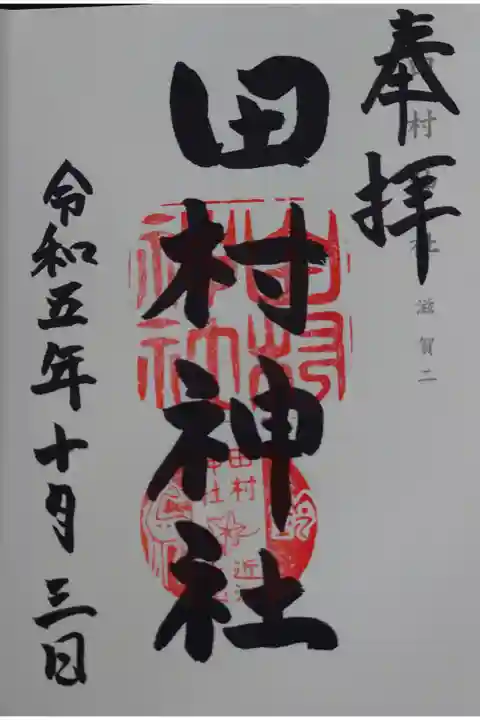 奉拝
田村神社 滋賀二
田村神社
田村神社
田村
神社
近
令和五年十月三日